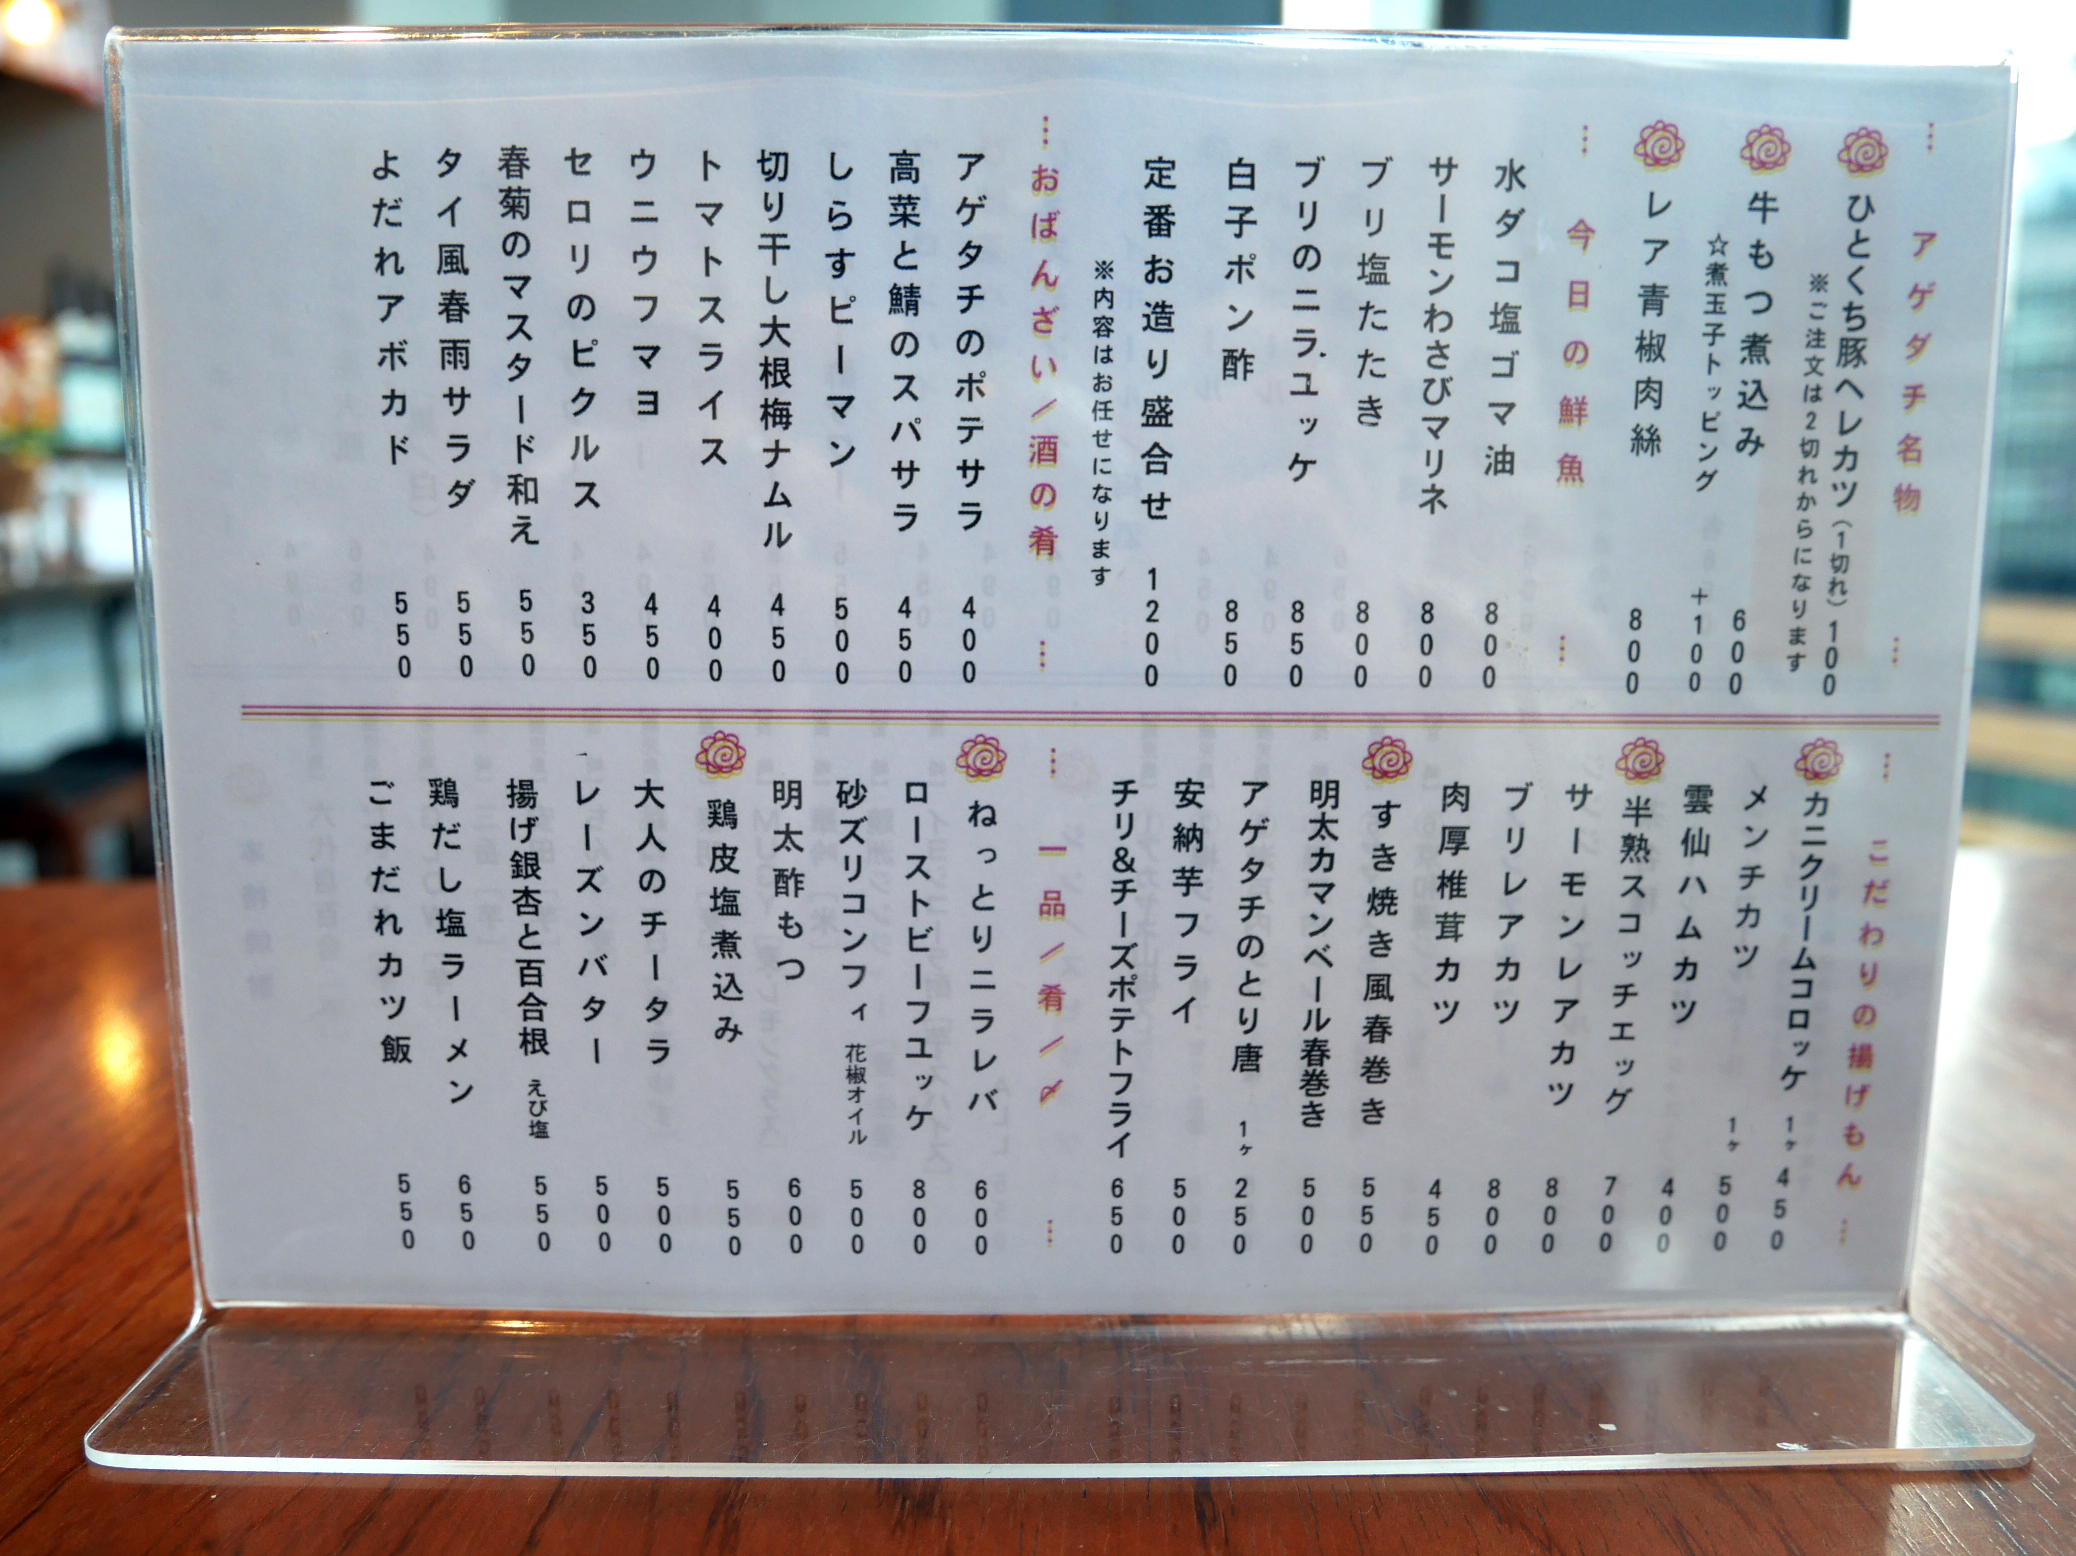 アゲダチ名物
ひとくち豚ヘレカツ（1切れ）100
※ご注文は2切れからになります
牛もつ煮込み 600
☆煮玉子トッピング +100
レア青椒肉絲 800
今日の鮮魚
水ダコ塩ゴマ油 800
サーモンわさびマリネ 800
ブリ塩たたき 800
ブリのニラユッケ 850
白子ポン酢 850
定番お造り盛合せ 1200
※内容はお任せになります
おばんざい／酒の肴
アゲタチのポテサラ 400
高菜と鯖のスパサラ 450
しらすピーマン 500
切り干し大根梅ナムル 450
トマトスライス 400
ウニウフマヨ 450
セロリのピクルス 350
春菊のマスタード和え 550
タイ風春雨サラダ 550
よだれアボカド 550
こだわりの揚げもん
カニクリームコロッケ 1ヶ 450
メンチカツ 1ヶ 500
雲仙ハムカツ 400
半熟スコッチエッグ 700
サーモンレアカツ 800
ブリレアカツ 800
肉厚椎茸カツ 450
すき焼き風春巻き 550
明太カマンベール春巻き 500
アゲタチのとり唐 1ヶ 250
安納芋フライ 500
チリ&チーズポテトフライ 650
一品／肴／〆
ねっとりニラレバ 600
ローストビーフユッケ 800
砂ズリコンフィ 花椒オイル 500
明太酢もつ 600
鶏皮塩煮込み 550
大人のチータラ 500
レーズンバター 500
揚げ銀杏と百合根 えび塩 550
鶏だし塩ラーメン 650
ごまだれカツ飯 550